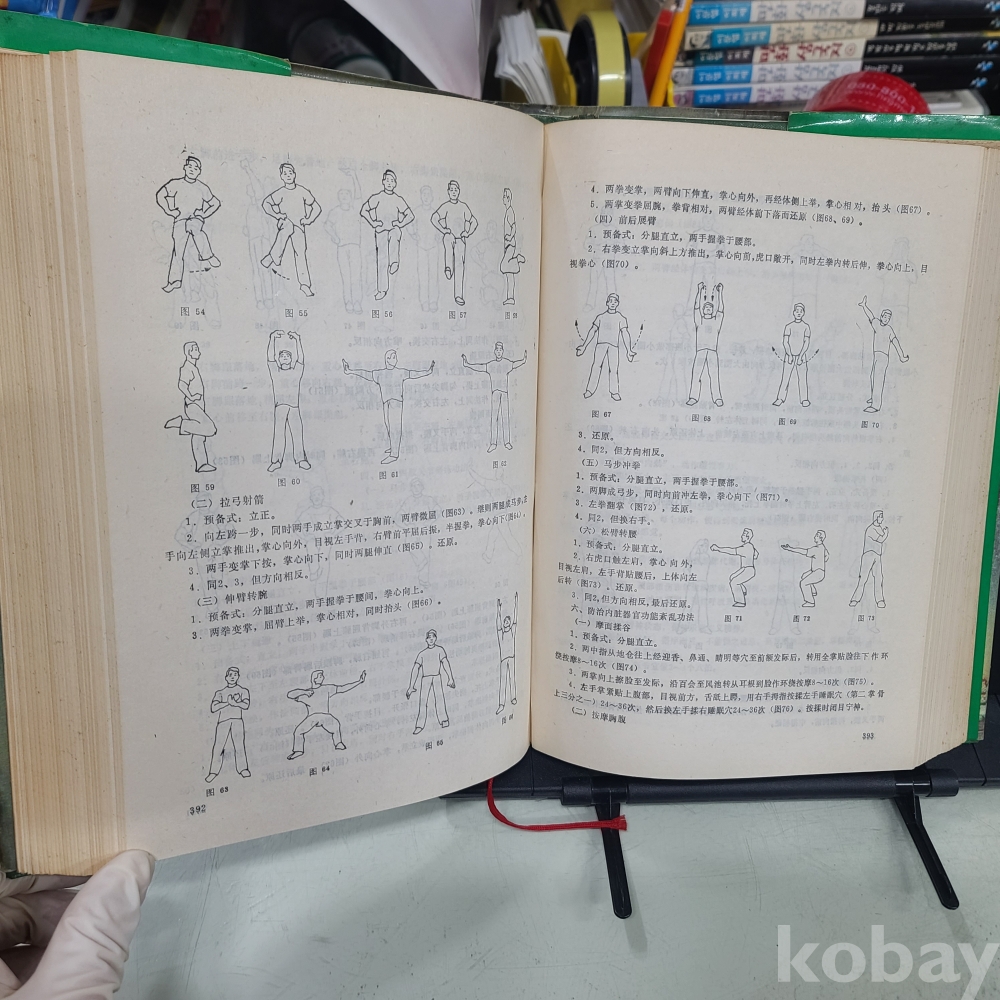 图 54
图 55
图 56
图 57
图 58
图 59
图 60
图 61
图 62
(二) 拉弓射箭
1. 预备式：立正。
2. 向左跨一步，同时两手成立掌交叉于胸前，两臂微屈（图63）。继则两腿成马步，左
手向左侧立掌推出，掌心向外，目视左手背，右臂前平屈后振，半握拳，拳心向下（图64）。
3. 两手变掌下按，掌心向下，同时两腿伸直（图65）。还原。
4. 同2、3，但方向相反。
(三) 伸臂转腕
1. 预备式：分腿直立，两手握拳于腰间，拳心向上。
3. 两拳变掌，屈臂上举，掌心相对，同时抬头（图66）。
图 63
图 64
图 65
图 66
392
4. 两拳变掌，两臂向下伸直，掌心向外，再经体侧上举，掌心相对，抬头（图67）。
5. 两掌变拳屈腕，拳背相对，两臂经体前下落而还原（图68、69）。
(四) 前后展臂
1. 预备式：分腿直立，两手握拳于腰部。
2. 右拳变立掌向斜上方推出，掌心向前，虎口敞开，同时左拳内转后伸，拳心向上，目
视拳心（图70）。
图 67
图 68
图 69
图 70
3. 还原。
4. 同2，但方向相反。
(五) 马步冲拳
1. 预备式：分腿直立，两手握拳于腰部。
2. 两脚成弓步，同时向前冲左拳，拳心向下（图71）。
3. 左拳翻掌（图72），还原。
4. 同2，但换右手。
(六) 松臂转腰
1. 预备式：分腿直立。
2. 右虎口触左肩，掌心向外，
目视左肩，左手背贴腰后，上体向左
后转（图73）。还原。
3. 同2，但方向相反，最后还原。
图 71
图 72
图 73
六、防治内脏器官功能紊乱功法
(一) 摩面揉谷
1. 预备式：分腿直立。
2. 两中指从地仓往上经迎香、鼻通、睛明等穴至前额发际后，转用全掌贴脸往下作环
绕按摩8～16次（图74）。
3. 两掌向上擦脸至发际，沿百会至风池转从耳根到脸作环绕按摩8～16次（图75）。
4. 左手掌紧贴上腹部，目视前方，舌舐上腭，用右手拇指按揉左手睡眠穴（第二掌骨
上三分之一）24～36次，然后换左手揉右睡眠穴24～36次（图76）。按揉时闭目宁伸。
(二) 按摩胸腹
393
kobay